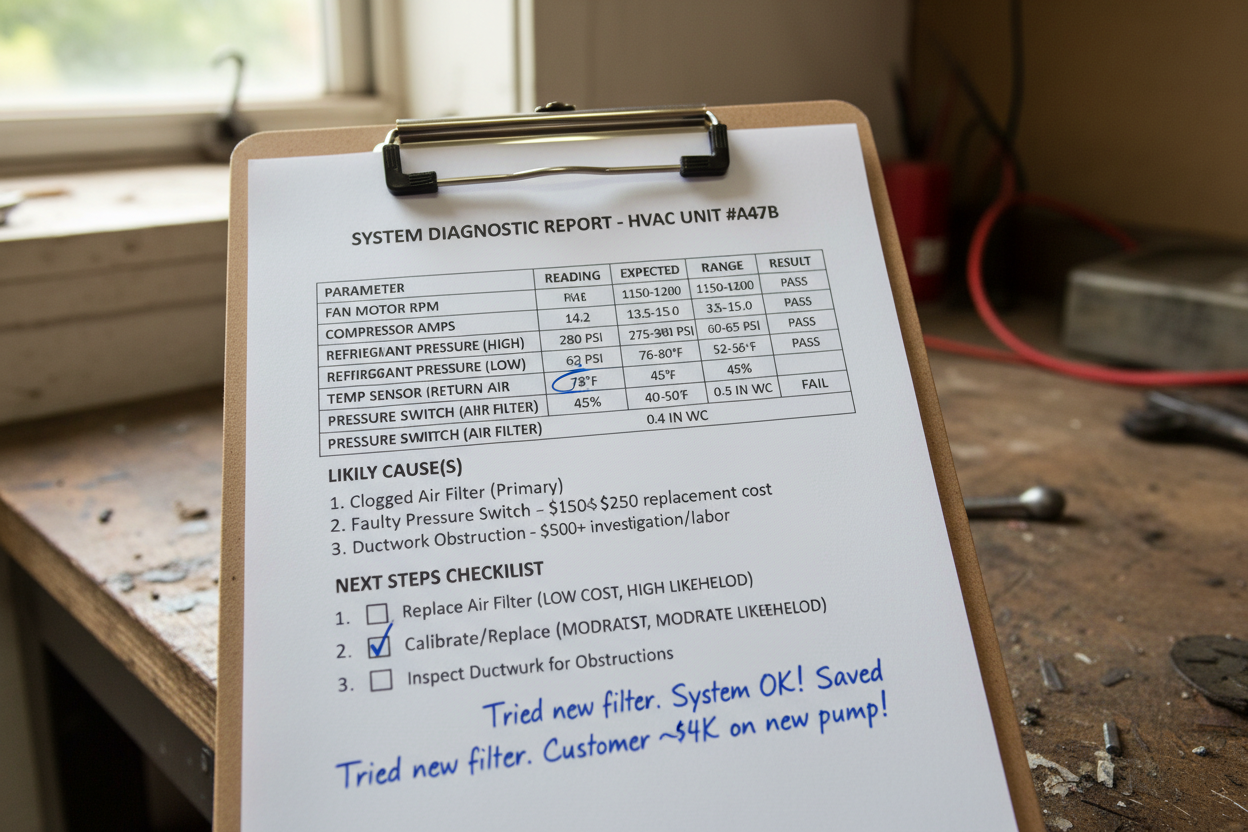 SYSTEM DIAGNOSTIC REPORT - HVAC UNIT #A47B
PARAMETER READING EXPECTED RANGE RESULT
FAN MOTOR RPM 1150-1200 1150-1200 PASS
COMPRESSOR AMPS 14.2 13.5-15.0 PASS
REFRIEGMANT PRESSURE (HIGH) 280 PSI 60-65 PSI PASS
REFFIRGGANT PRESSURE (LOW) 62 PSI 76-80°F 52-56°F PASS
TEMP SENSOR (RETURN AIR 78°F 45°F 45%
PRESSURE SWITCH (AIIR FILTER) 45% 40-50°F 0.5 IN WC FAIL
PRESSURE SWIITCH (AIR FILTER) 0.4 IN WC
LIKILY CAUSE(S)
1. Clogged Air Filter (Primary)
2. Faulty Pressure Switch – $250 replacement cost
3. Ductwork Obstruction - $500+ investigation/labor
NEXT STEPS CHECKLIST
1. Replace Air Filter (LOW COST, HIGH LIKEHELOD)
2. Calibrate/Replace (MODRATST, MODRATE LIKEEHELOD)
3. Inspect Ductwurk for Obstructions
Tried new filter. System OK! Saved
Tried new filter. Customer ~$4K on new pump!